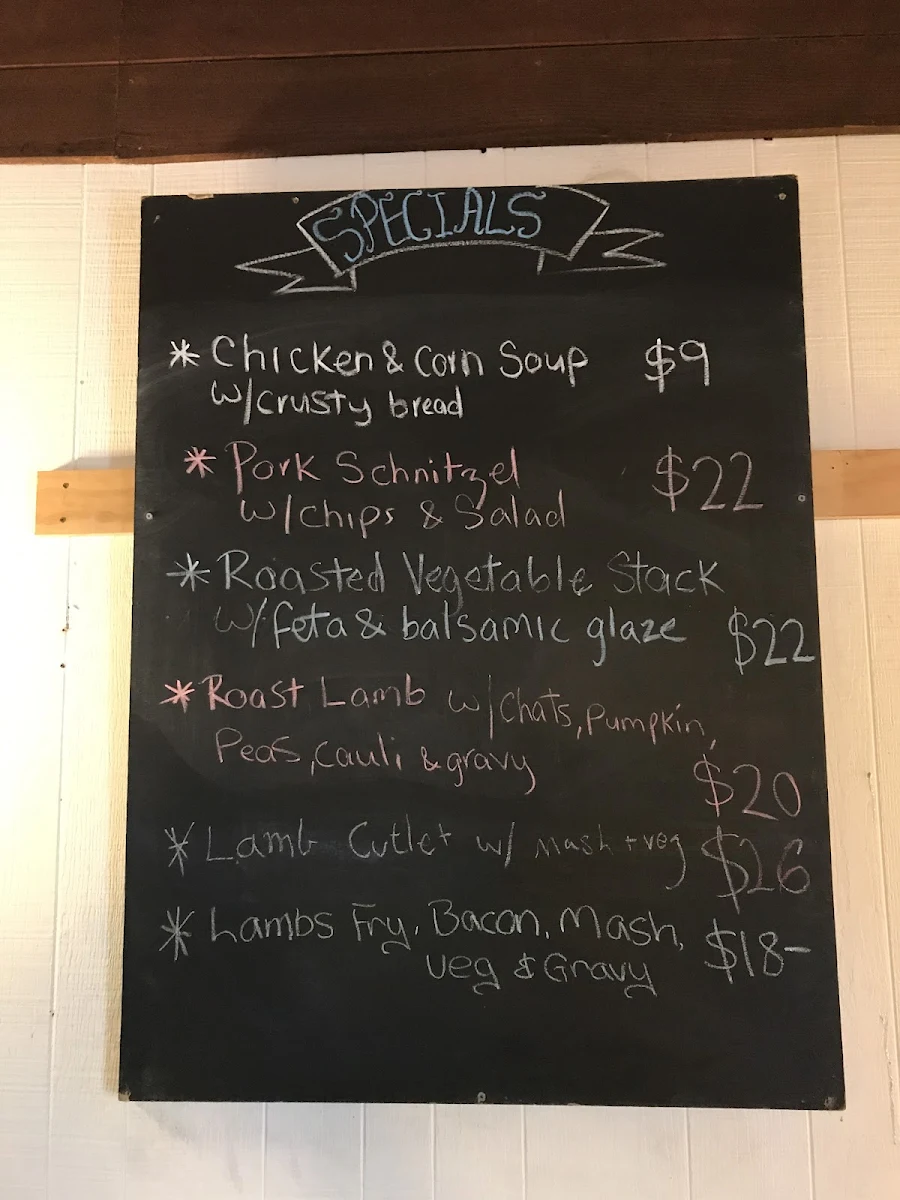 SPECIALS
* Chicken & Corn Soup $9
w/crusty bread
* Pork Schnitzel $22
w/chips & Salad
* Roasted Vegetable Stack
w/feta & balsamic glaze $22
* Roast Lamb w/Chats, Pumpkin,
Peas, cauli & gravy
$20
* Lamb Cutlet w/ mash + veg $26
* Lambs Fry, Bacon, Mash, $18-
Veg & Gravy